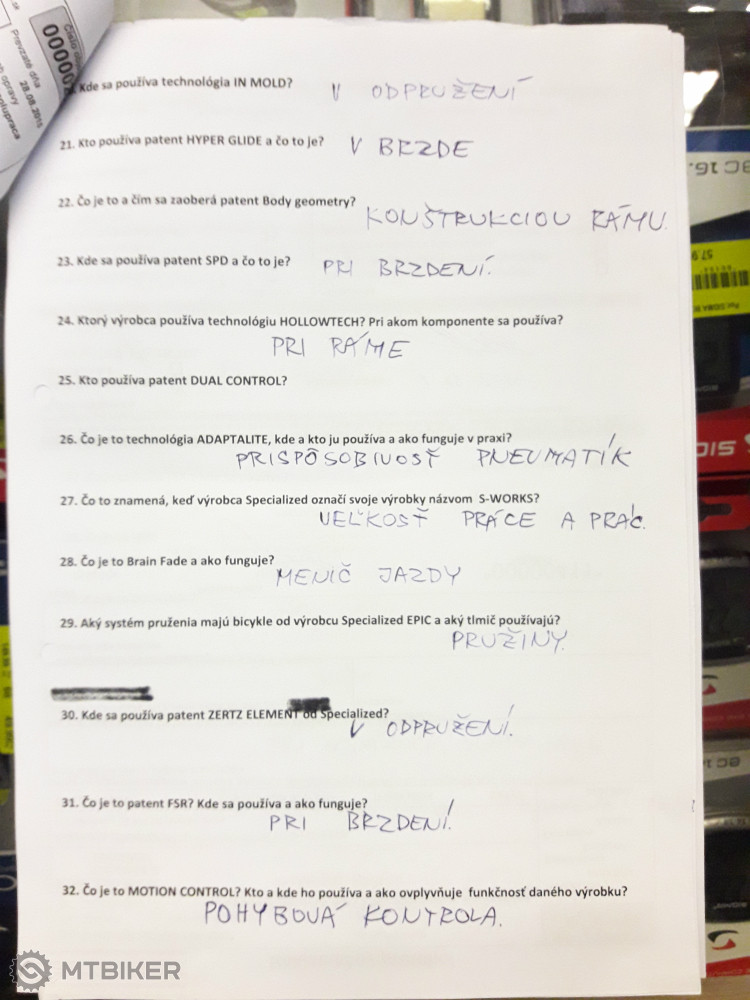 Číslo
00000
Prevzaté dňa
28.08.201
opravy
olupraca
Kde sa používa technológia IN MOLD?
V ODPRUŽENÍ
21. Kto používa patent HYPER GLIDE a čo to je?
V BRZDE
22. Čo je to a čím sa zaoberá patent Body geometry?
KONŠTRUKCIOU RÁMU.
23. Kde sa používa patent SPD a čo to je?
PRI BRZDENÍ.
24. Ktorý výrobca používa technológiu HOLLOWTECH? Pri akom komponente sa používa?
PRI RÁME
25. Kto používa patent DUAL CONTROL?
26. Čo je to technológia ADAPTALITE, kde a kto ju používa a ako funguje v praxi?
PRISPÔSOBIVOSŤ PNEUMATÍK
27. Čo to znamená, keď výrobca Specialized označí svoje výrobky názvom S-WORKS?
VEĽKOSŤ PRÁCE A PRÁC.
28. Čo je to Brain Fade a ako funguje?
MENIČ JAZDY
29. Aký systém pruženia majú bicykle od výrobcu Specialized EPIC a aký tlmič používajú?
PRUŽINY.
30. Kde sa používa patent ZERTZ ELEMENT od Specialized?
V ODPRUŽENÍ.
31. Čo je to patent FSR? Kde sa používa a ako funguje?
PRI BRZDENÍ.
32. Čo je to MOTION CONTROL? Kto a kde ho používa a ako ovplyvňuje funkčnosť daného výrobku?
POHYBOVÁ KONTROLA.
BC 16.
57.9
MTBIKER